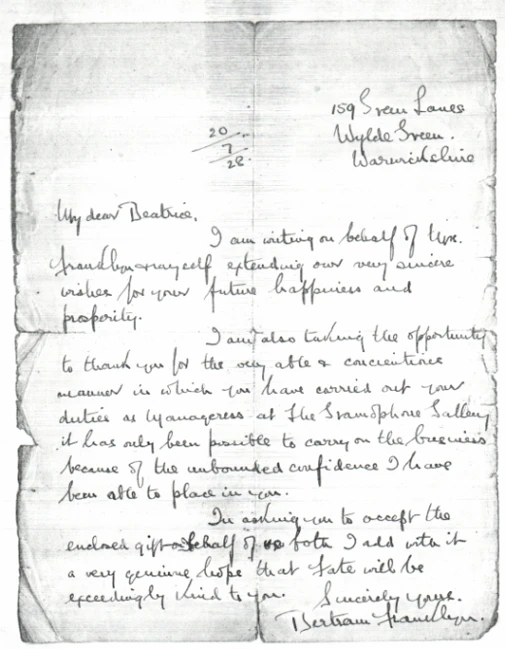 159 Green Lanes
Wylde Green.
Warwickshire
20
7
28
My dear Beatrice,
I am writing on behalf of Mrs.
Franklyn & myself extending our very sincere
wishes for your future happiness and
prosperity.
I am also taking the opportunity
to thank you for the very able & concientious
manner in which you have carried out your
duties as Manageress at The Gramophone Gallery
it has only been possible to carry on the business
because of the unbounded confidence I have
been able to place in you.
In asking you to accept the
enclosed gift on behalf of us both I add with it
a very genuine hope that Fate will be
exceedingly kind to you.
Sincerely yours.
Bertram Franklyn.